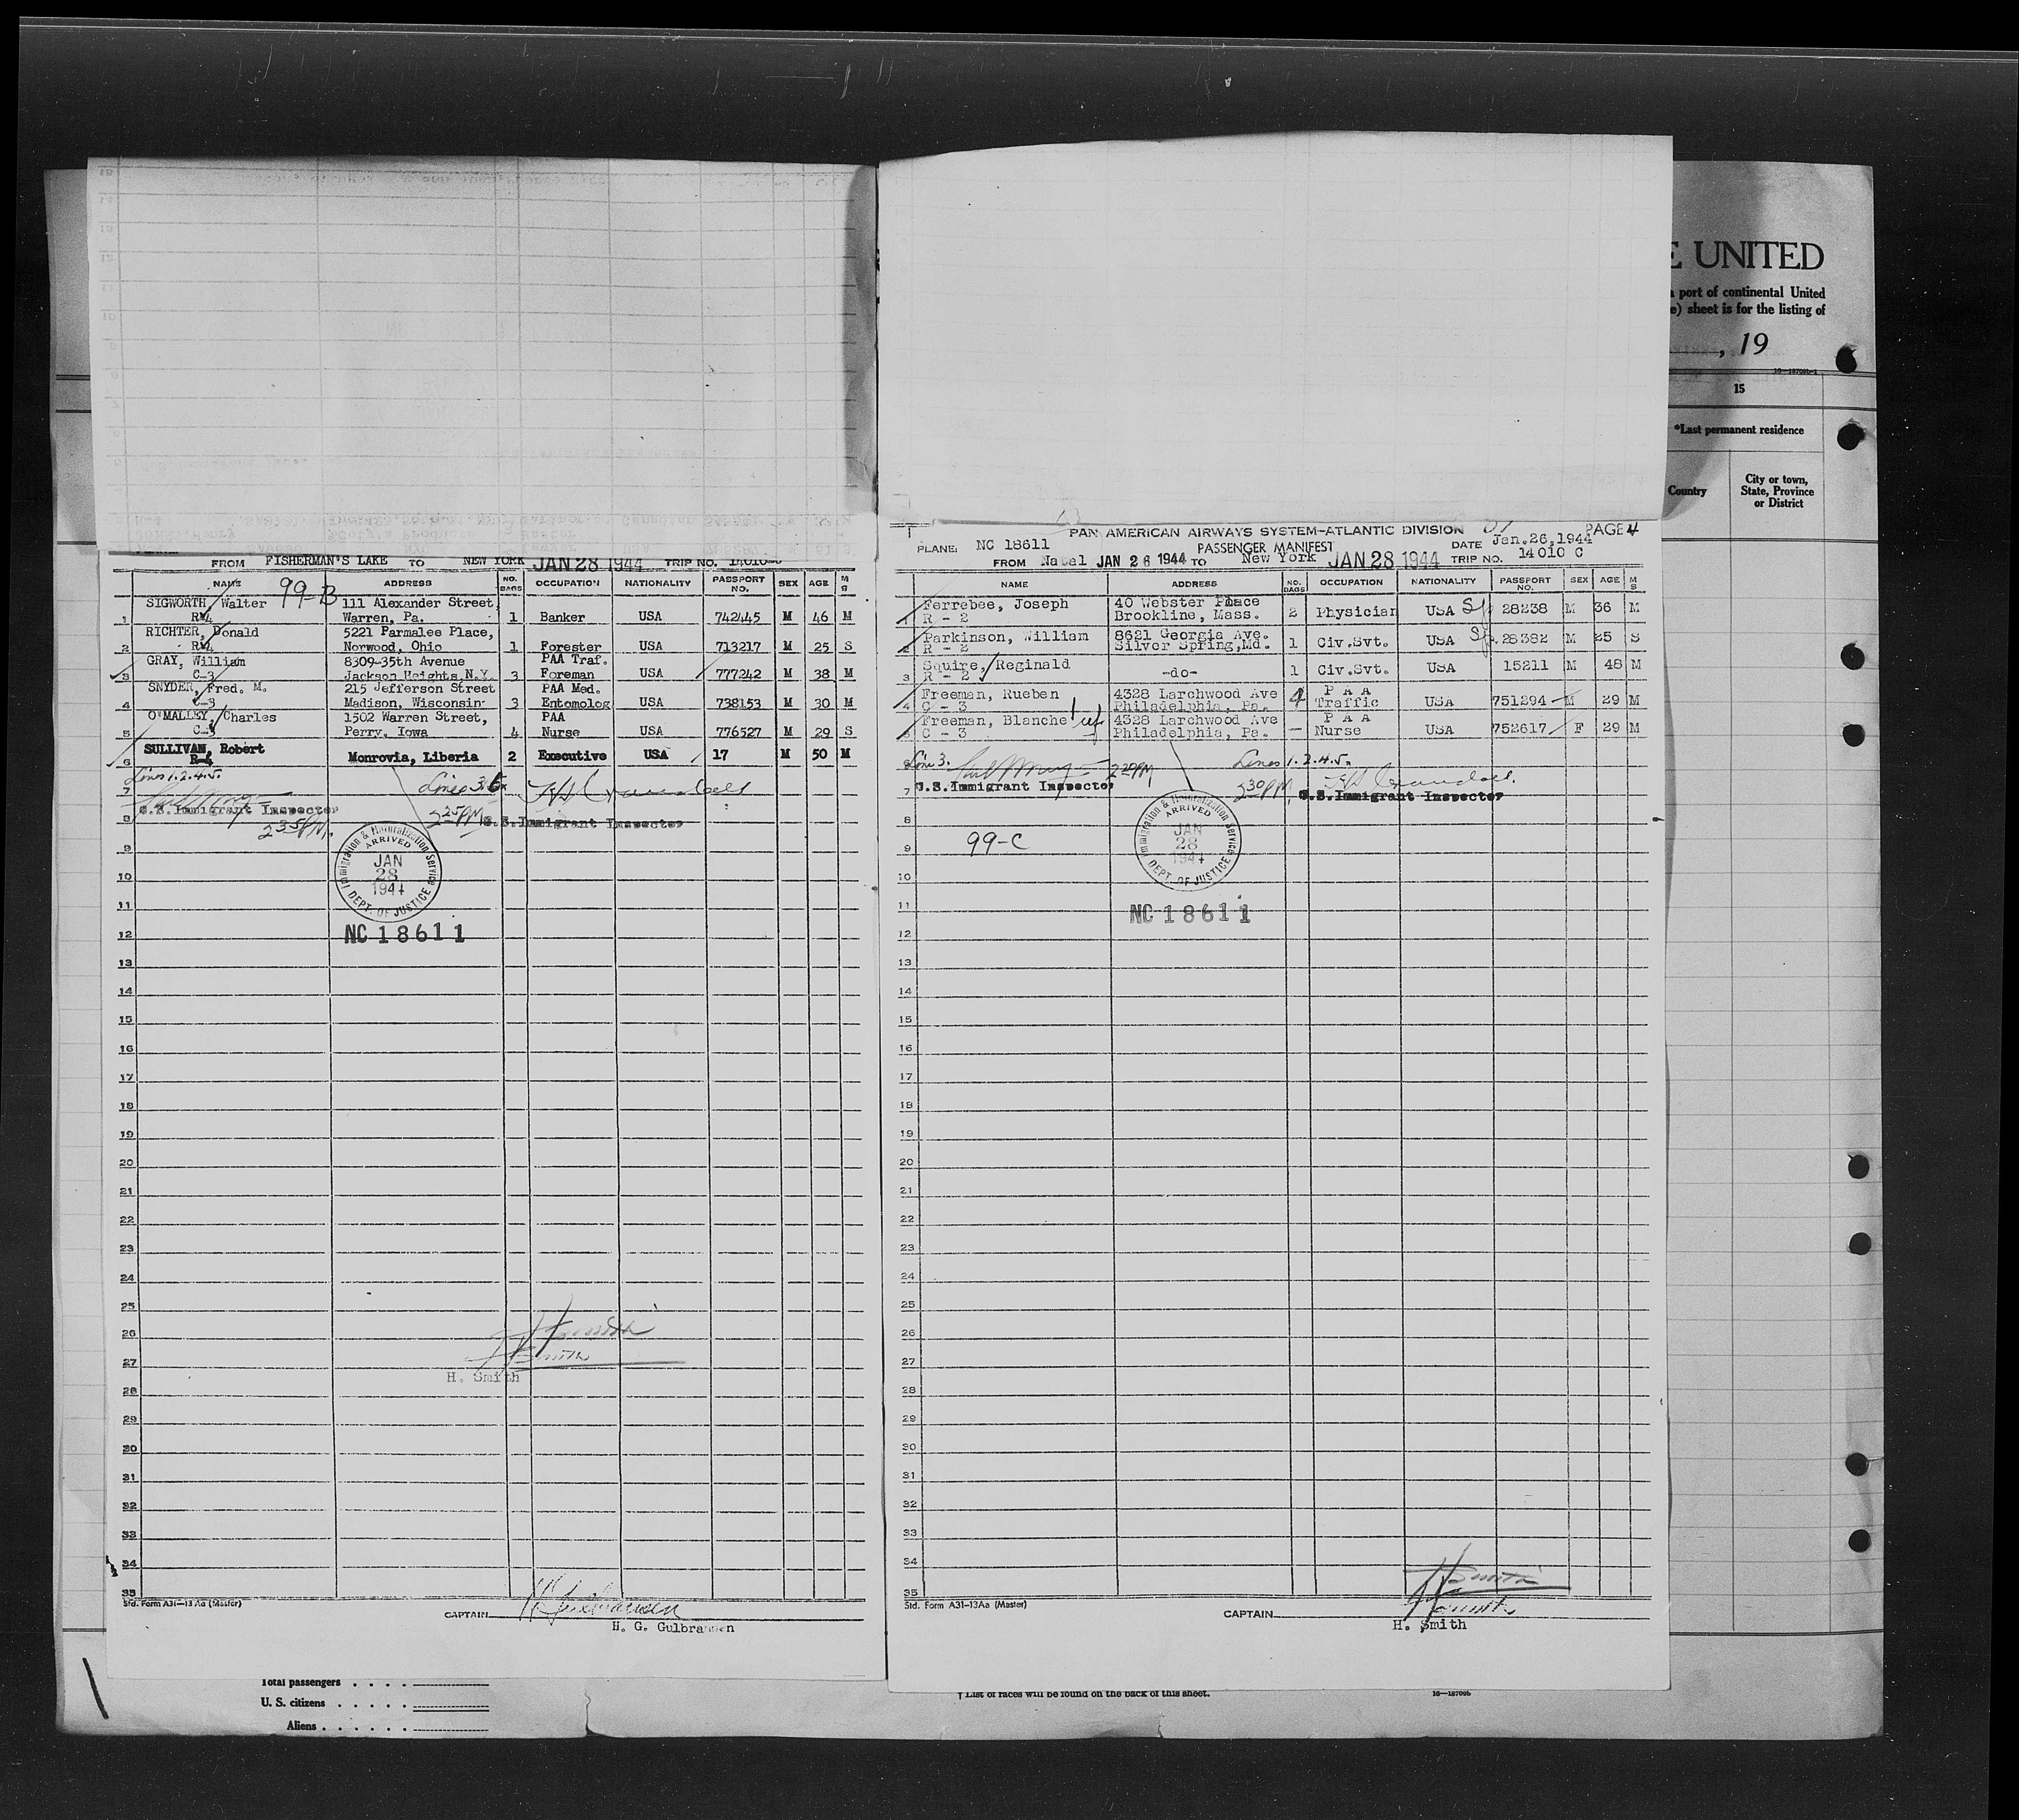 FROM FISHERMAN'S LAKE TO NEW YORK JAN 28 1944 TRIP NO. 14010-C
NAME 99-B ADDRESS NO. BAGS OCCUPATION NATIONALITY PASSPORT NO. SEX AGE M S
SIGWORTH, Walter 111 Alexander Street,
1 R-4 Warren, Pa. 1 Banker USA 742445 M 46 M
RICHTER, Donald 5221 Parmalee Place,
2 R-4 Norwood, Ohio 1 Forester USA 713217 M 25 S
GRAY, William 8309-35th Avenue PAA Traf.
3 C-3 Jackson Heights, N.Y. 3 Foreman USA 777242 M 38 M
SNYDER, Fred. M. 215 Jefferson Street PAA Med.
4 C-3 Madison, Wisconsin 3 Entomolog USA 738153 M 30 M
O'MALLEY, Charles 1502 Warren Street, PAA
5 C-3 Perry, Iowa 4 Nurse USA 776527 M 29 S
SULLIVAN, Robert
6 R-4 Monrovia, Liberia 2 Executive USA 17 M 50 M
Lines 1.2.4.5.
7 Lines 3.6
U.S. Immigrant Inspector
8 235PM 225PM U.S. Immigrant Inspector
Immigration & Naturalization Service
ARRIVED
JAN
28
1944
DEPT. OF JUSTICE
NC 18611
9
10
11
12
13
14
15
16
17
18
19
20
21
22
23
24
25
26
27
H. Smith
28
29
30
31
32
33
34
35
Std. Form A31-13Aa (Master)
CAPTAIN
H. G. Gulbransen
Total passengers . . . .
U. S. citizens . . . . .
Aliens . . . . . .
PAN AMERICAN AIRWAYS SYSTEM-ATLANTIC DIVISION PAGE 4
PLANE: NC 18611 PASSENGER MANIFEST DATE Jan.26,1944
FROM Natal JAN 26 1944 TO New York JAN 28 1944 TRIP NO. 14010 C
NAME ADDRESS NO. BAGS OCCUPATION NATIONALITY PASSPORT NO. SEX AGE M S
Ferrebee, Joseph 40 Webster Place
1 R - 2 Brookline, Mass. 2 Physician USA Sp 28238 M 36 M
Parkinson, William 8621 Georgia Ave.
2 R - 2 Silver Spring,Md. 1 Civ.Svt. USA Sp. 28382 M 25 S
Squire, Reginald
3 R - 2 -do- 1 Civ.Svt. USA 15211 M 48 M
Freeman, Rueben 4328 Larchwood Ave P A A
4 C - 3 Philadelphia, Pa. 4 Traffic USA 751294 M 29 M
Freeman, Blanche wf 4328 Larchwood Ave P A A
5 C - 3 Philadelphia, Pa. — Nurse USA 752617 F 29 M
6 Line 3. 220PM Lines 1.2.4.5.
7 U.S. Immigrant Inspector 230PM U.S. Immigrant Inspector
8
9 99-C
Immigration & Naturalization Service
ARRIVED
JAN
28
1944
DEPT. OF JUSTICE
NC 18611
10
11
12
13
14
15
16
17
18
19
20
21
22
23
24
25
26
27
28
29
30
31
32
33
34
35
Std. Form A31-13Aa (Master)
H Smith
CAPTAIN
H. Smith
† List of races will be found on the back of this sheet. 16—18709b
E UNITED
a port of continental United
e) sheet is for the listing of
, 19
15
*Last permanent residence
Country
City or town, State, Province or District